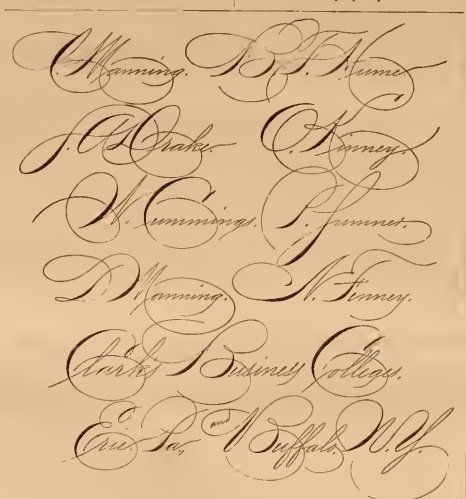 C. Manning. B. F. Hume
J. A. Drake. O. Kinney.
N. Cummings. P. Sumner.
D. Manning. N. Finney.
Clark's Business Colleges.
Erie, Pa., and Buffalo, N.Y.